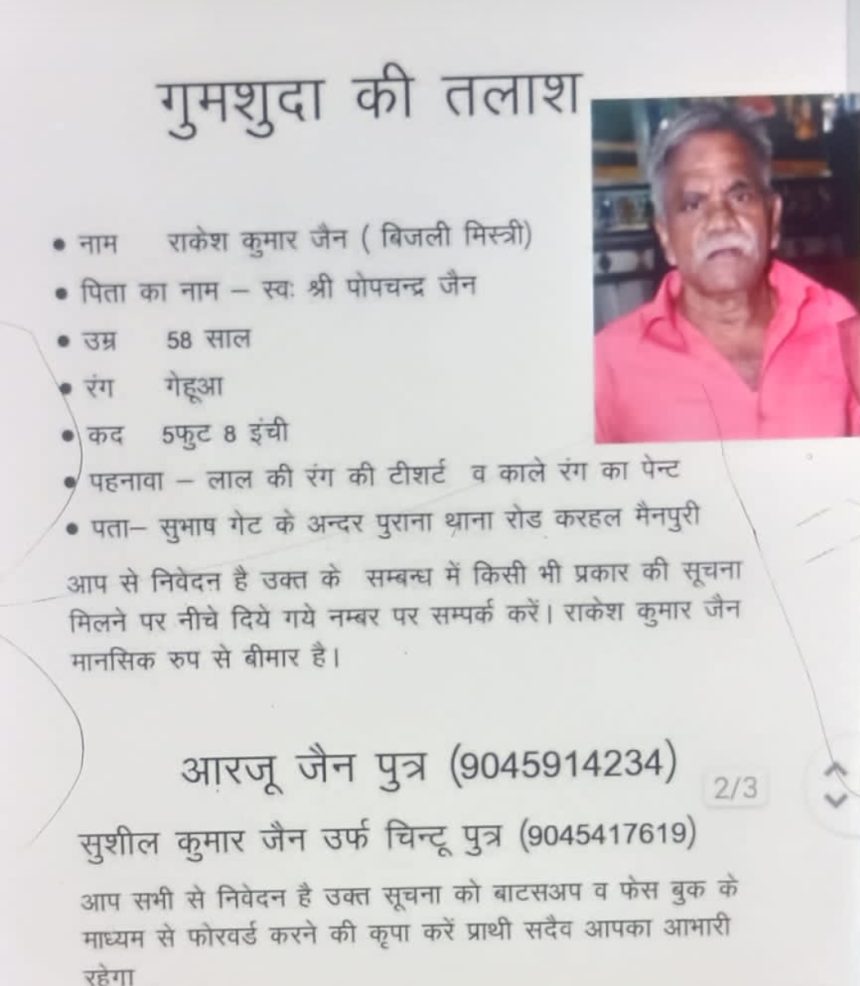 गुमशुदा की तलाश
• नाम राकेश कुमार जैन ( बिजली मिस्त्री)
• पिता का नाम – स्वः श्री पोपचन्द्र जैन
• उम्र 58 साल
• रंग गेहूआ
• कद 5फुट 8 इंची
• पहनावा – लाल की रंग की टीशर्ट व काले रंग का पेन्ट
• पता– सुभाष गेट के अन्दर पुराना थाना रोड करहल मैनपुरी
आप से निवेदन है उक्त के सम्बन्ध में किसी भी प्रकार की सूचना
मिलने पर नीचे दिये गये नम्बर पर सम्पर्क करें। राकेश कुमार जैन
मानसिक रुप से बीमार है।
आरजू जैन पुत्र (9045914234)
2/3
सुशील कुमार जैन उर्फ चिन्टू पुत्र (9045417619)
आप सभी से निवेदन है उक्त सूचना को बाटसअप व फेस बुक के
माध्यम से फोरवर्ड करने की कृपा करें प्रार्थी सदैव आपका आभारी
रहेगा